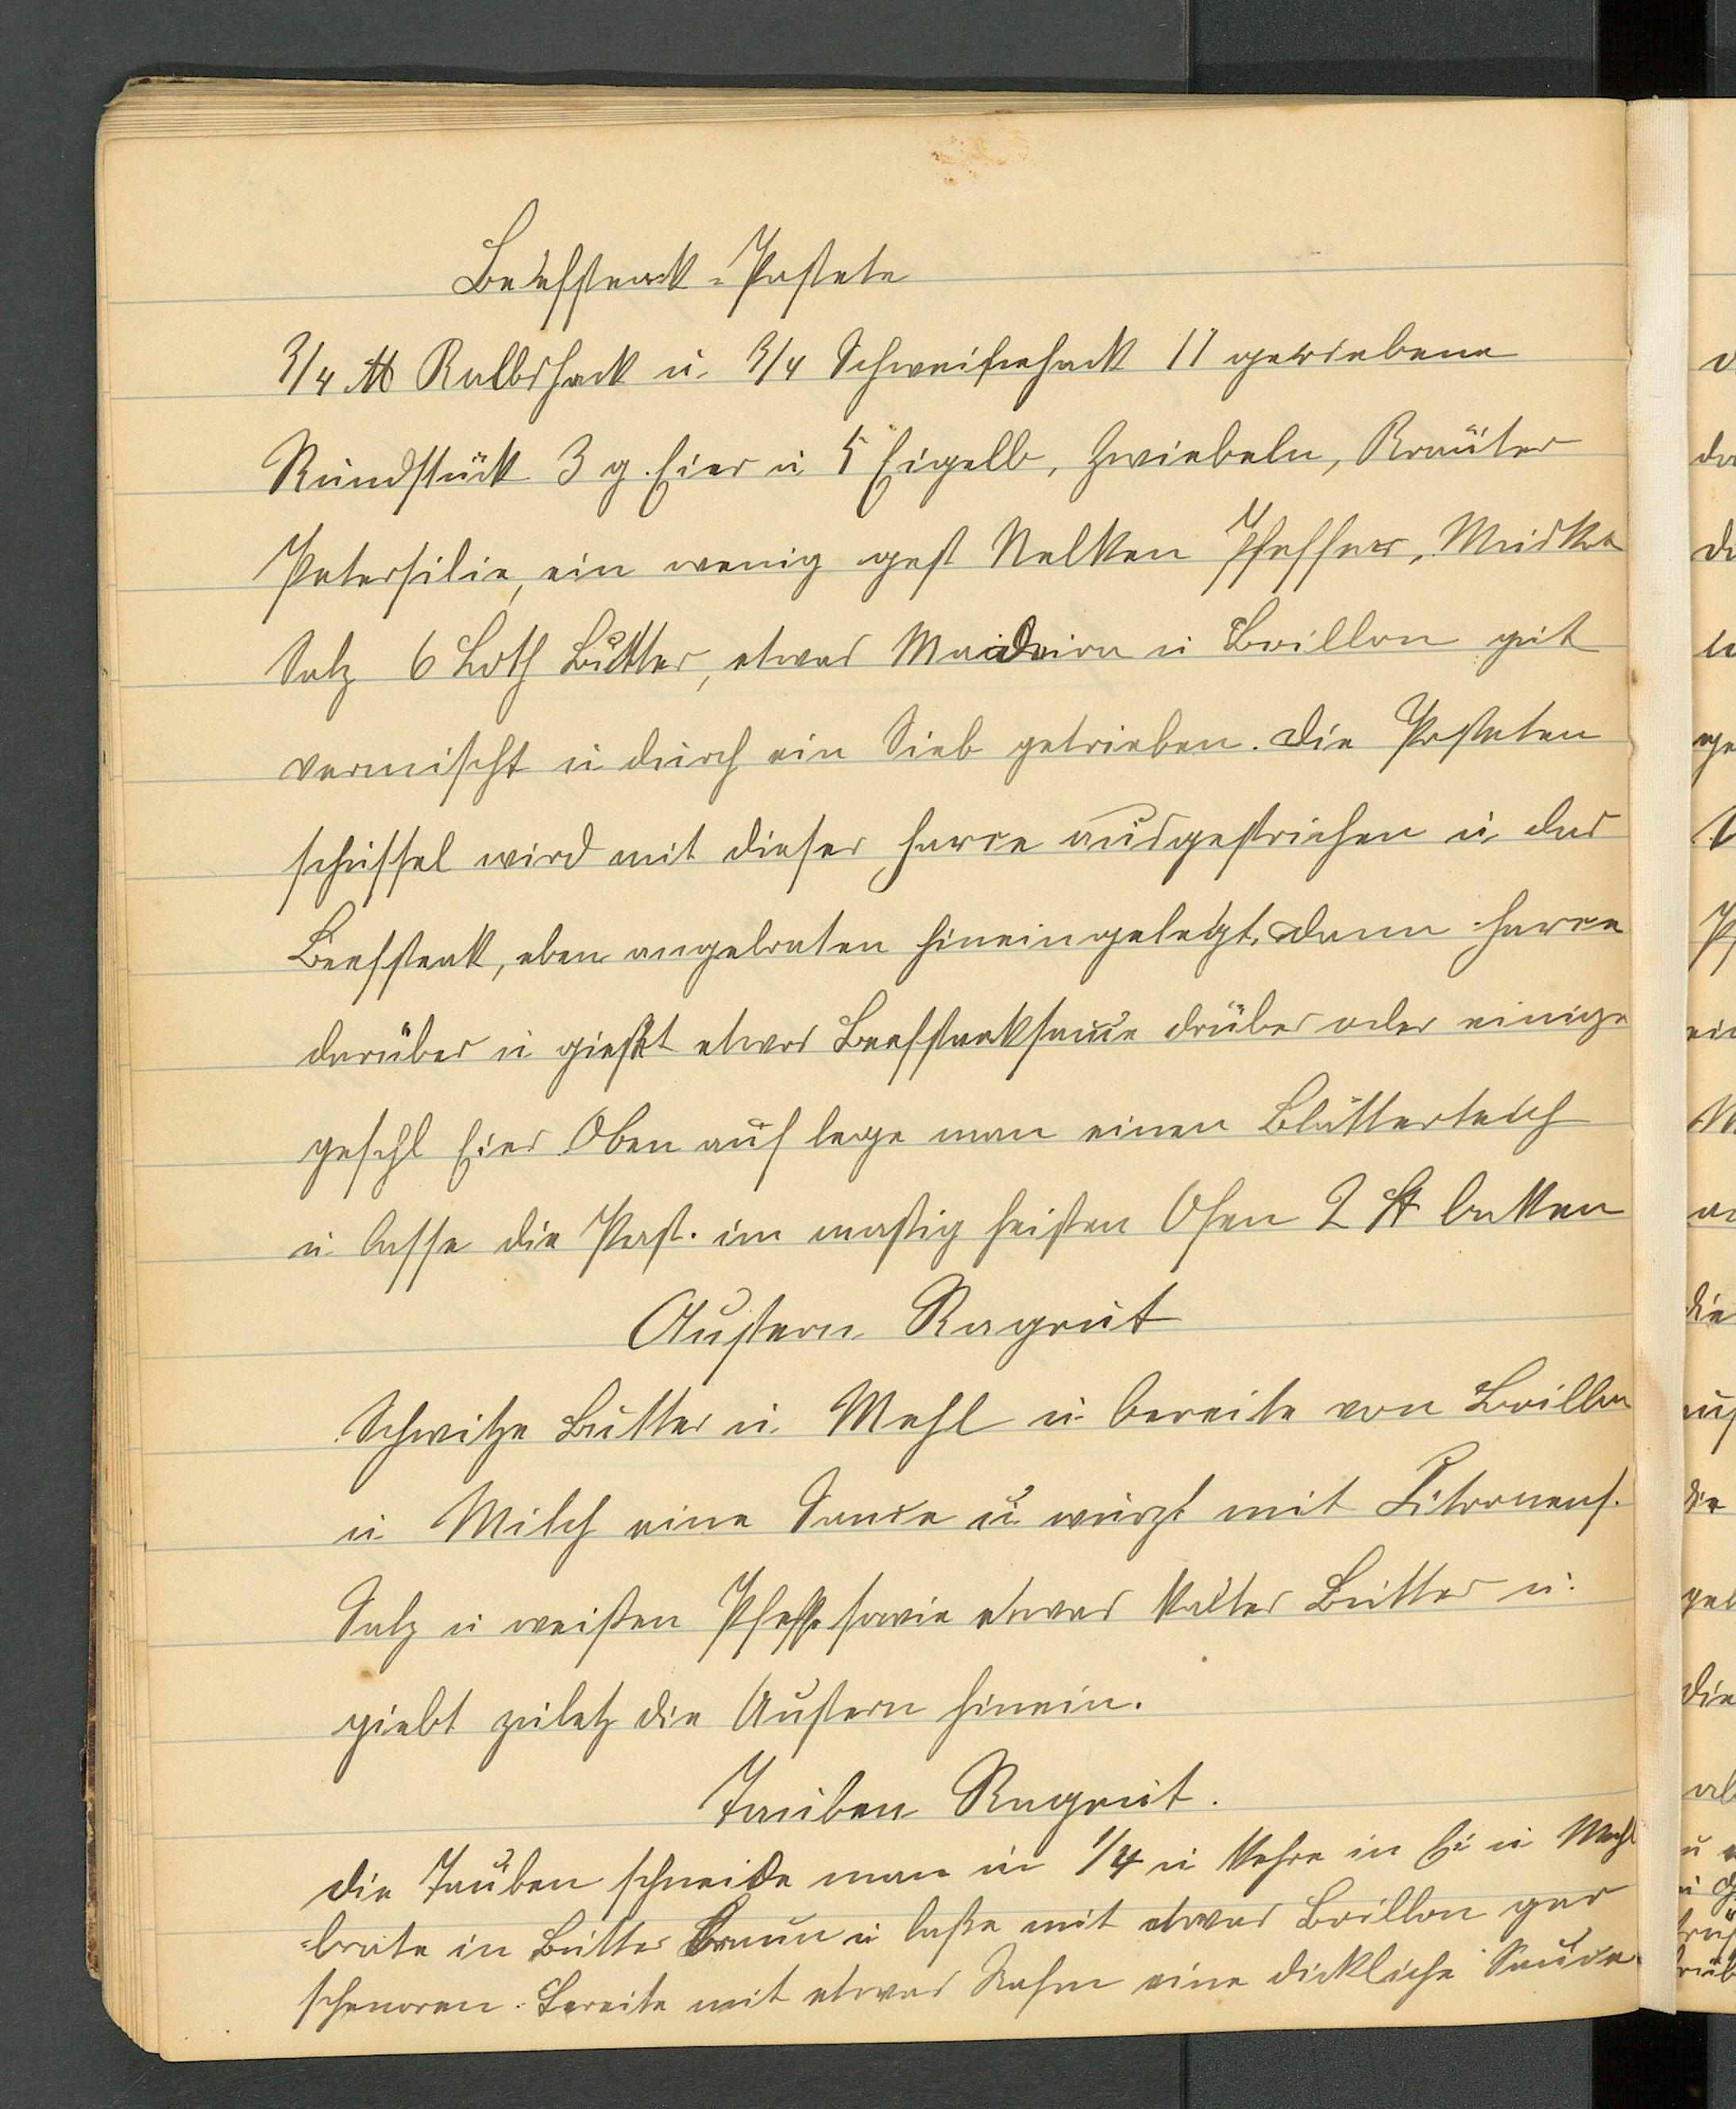 Beefsteack-Pastete
3/4 ℔ Kalbshack u. 3/4 Schweinehack 11 geriebene
Rundstück 3 g. Eier u 5 Eigelb, Zwiebeln, Kräuter
Petersilie, ein wenig gest Nelken Pfeffer, Muskat
Salz 6 Loth Butter, etwas Madeira u Boillon gut
vermischt u durch ein Sieb getrieben. Die Pasteten
schüssel wird mit dieser Farce ausgestrichen u das
Beefsteak, eben angebraten hineingelegt, dann Farce
darüber u gießt etwas Beefsteaksauce drüber oder einige
geschl Eier Oben auf lege man einen Blätterteich
u lasse die Past. im mäßig heißen Ofen 2 St backen
Austern Ragout
Schwitze Butter u. Mehl u bereite von Boillon
u Milch eine Sauce u. würzt mit Citronens.
Salz u weißen Pfeff. sowie etwas kalter Butter u.
giebt zuletz die Austern hinein.
Tauben Ragout.
Die Tauben schneide man in 1/4 u kehre in Ei u Mehl
brate in Butter braun u laße mit etwas Boillon gar
schmoren. Bereite mit etwas Rahm eine dickliche Sauce